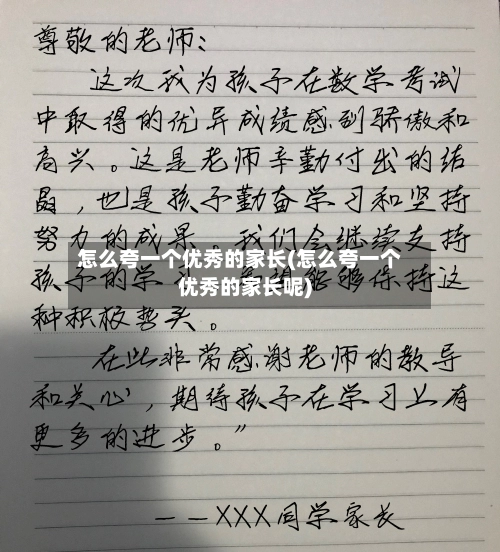 尊敬的老师：
这次我为孩子在数学考试
中取得的优异成绩感到骄傲和
高兴。这是老师辛勤付出的结
晶，也是孩子勤奋学习和坚持
努力的成果。我们会继续支持
怎么夸一个优秀的家长(怎么夸一个
优秀的家长呢)
孩子的学习，能够保持这
种积极势头。
在此非常感谢老师的教导
和关心，期待孩子在学习上有
更多的进步。”
——XXX同学家长